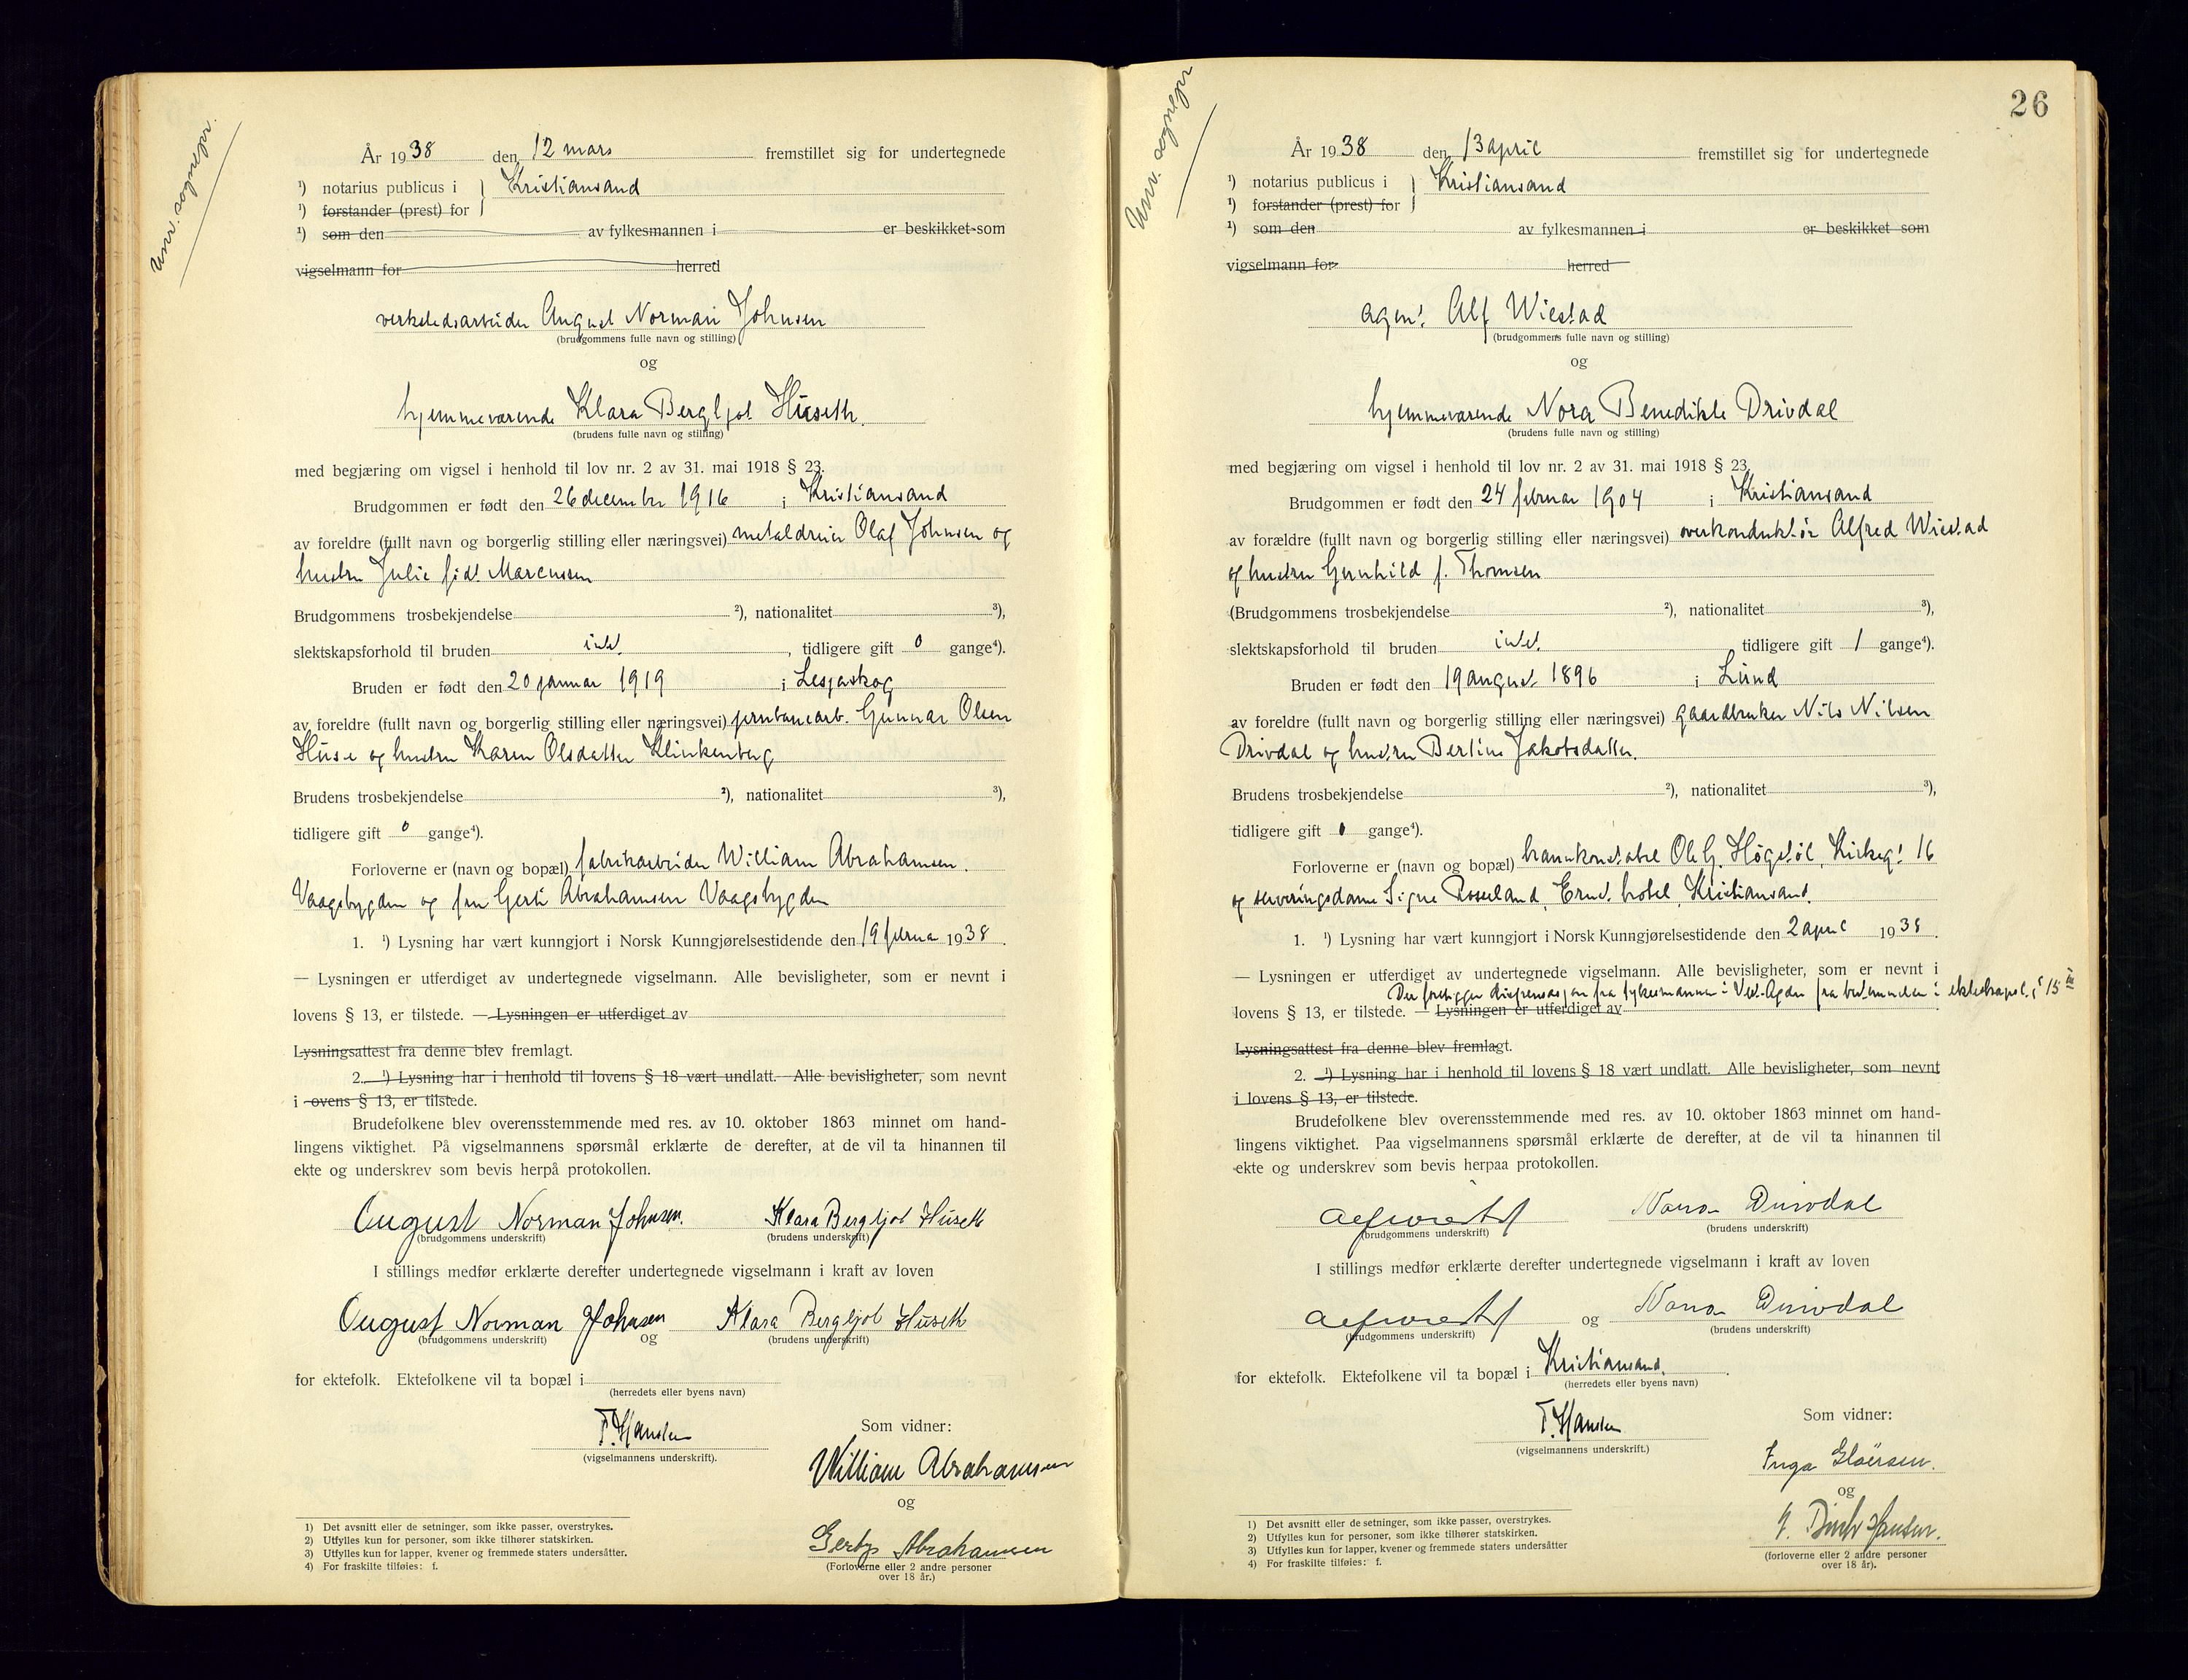 Unv. sognepr.
År 1938 den 12 mars fremstillet sig for undertegnede
¹) notarius publicus i } Kristiansand
¹) forstander (prest) for
¹) som den av fylkesmannen i er beskikket som
vigselmann for herred
verkstedsarbeider August Norman Johnsen
(brudgommens fulle navn og stilling)
og
hjemmeværende Klara Bergljot Huseth.
(brudens fulle navn og stilling)
med begjæring om vigsel i henhold til lov nr. 2 av 31. mai 1918 § 23.
Brudgommen er født den 26 december 1916 i Kristiansand
av foreldre (fullt navn og borgerlig stilling eller næringsvei) metaldreier Olaf Johnsen og
hustru Julie født Marcussen
Brudgommens trosbekjendelse ²), nationalitet ³),
slektskapsforhold til bruden intet, tidligere gift 0 gange⁴).
Bruden er født den 20 januar 1919 i Lesjaskog
av foreldre (fullt navn og borgerlig stilling eller næringsvei) jernbanearb. Gunnar Olsen
Huse og hustru Karen Olsdatter Klinkenberg
Brudens trosbekjendelse ²), nationalitet ³),
tidligere gift 0 gange⁴).
Forloverne er (navn og bopæl) fabrikarbeider William Abrahamsen,
Vaagsbygden og fru Gerti Abrahamsen Vaagsbygden
1. ¹) Lysning har vært kunngjort i Norsk Kunngjørelsestidende den 19 februa 1938.
— Lysningen er utferdiget av undertegnede vigselmann. Alle bevisligheter, som er nevnt i
lovens § 13, er tilstede. — Lysningen er utferdiget av
Lysningsattest fra denne blev fremlagt.
2. ¹) Lysning har i henhold til lovens § 18 vært undlatt. Alle bevisligheter, som nevnt
i ovens § 13, er tilstede.
Brudefolkene blev overensstemmende med res. av 10. oktober 1863 minnet om hand-
lingens viktighet. På vigselmannens spørsmål erklærte de derefter, at de vil ta hinannen til
ekte og underskrev som bevis herpå protokollen.
August Norman Johnsen. Klara Bergljot Huseth
(brudgommens underskrift) (brudens underskrift)
I stillings medfør erklærte derefter undertegnede vigselmann i kraft av loven
August Norman Johnsen og Klara Bergljot Huseth
(brudgommens underskrift) (brudens underskrift)
for ektefolk. Ektefolkene vil ta bopæl i
(herredets eller byens navn)
T. Hansen
(vigselmannens underskrift).
Som vidner:
William Abrahamsen
og
Gerty Abrahamsen
(Forloverne eller 2 andre personer
over 18 år.)
1) Det avsnitt eller de setninger, som ikke passer, overstrykes.
2) Utfylles kun for personer, som ikke tilhører statskirken.
3) Utfylles kun for lapper, kvener og fremmede staters undersåtter.
4) For fraskilte tilføies: f.
26
Unv. sognepr
År 1938 den 13 april fremstillet sig for undertegnede
¹) notarius publicus i } Kristiansand
¹) forstander (prest) for
¹) som den av fylkesmannen i er beskikket som
vigselmann for herred
agent Alf Wiestad
(brudgommens fulle navn og stilling)
og
hjemmeværende Nora Benedikte Drivdal
(brudens fulle navn og stilling)
med begjæring om vigsel i henhold til lov nr. 2 av 31. mai 1918 § 23.
Brudgommen er født den 24 februar 1904 i Kristiansand
av forældre (fullt navn og borgerlig stilling eller næringsvei) overkonduktør Alfred Wiestad
og hustru Gunhild f. Thomsen
(Brudgommens trosbekjendelse ²), nationalitet ³),
slektskapsforhold til bruden intet tidligere gift 1 gange⁴).
Bruden er født den 19 august 1896 i Lund
av foreldre (fullt navn og borgerlig stilling eller næringsvei) gaardbruker Nils Nilsen
Drivdal og hustru Bertine Jakobsdatter.
Brudens trosbekjendelse ²), nationalitet ³),
tidligere gift 0 gange⁴).
Forloverne er (navn og bopæl) brannkonstabel Ole G. Høgstøl, Kirkegt 16
og serveringsdame Signe Rosseland, Ernst hotel, Kristiansand.
1. ¹) Lysning har vært kunngjort i Norsk Kunngjørelsestidende den 2 april 1938.
— Lysningen er utferdiget av undertegnede vigselmann. Alle bevisligheter, som er nevnt i
Der foreligger dispensasjon fra fylkesmannen i Vest-Agder fra bestemmelsen i ekteskapsl. § 15
lovens § 13, er tilstede. — Lysningen er utferdiget av
Lysningsattest fra denne blev fremlagt.
2. ¹) Lysning har i henhold til lovens § 18 vært undlatt. Alle bevisligheter, som nevnt
i lovens § 13, er tilstede.
Brudefolkene blev overensstemmende med res. av 10. oktober 1863 minnet om hand-
lingens viktighet. Paa vigselmannens spørsmål erklærte de derefter, at de vil ta hinannen til
ekte og underskrev som bevis herpaa protokollen.
Alf Wiestad Nora Drivdal
(brudgommens underskrift) (brudens underskrift)
I stillings medfør erklærte derefter undertegnede vigselmann i kraft av loven
Alf Wiestad og Nora Drivdal
(brudgommens underskrift) (brudens underskrift)
for ektefolk. Ektefolkene vil ta bopæl i Kristiansand.
(herredets eller byens navn)
T. Hansen
(vigselmannens underskrift.)
Som vidner:
Inga Gløersen.
og
(forloverne eller 2 andre personer
over 18 år).
1) Det avsnitt eller de setninger, som ikke passer, overstrykes.
2) Utfylles kun for personer, som ikke tilhører statskirken.
3) Utfylles kun for lapper, kvener og fremmede staters undersåtter
4) For fraskilte tilføies: f.